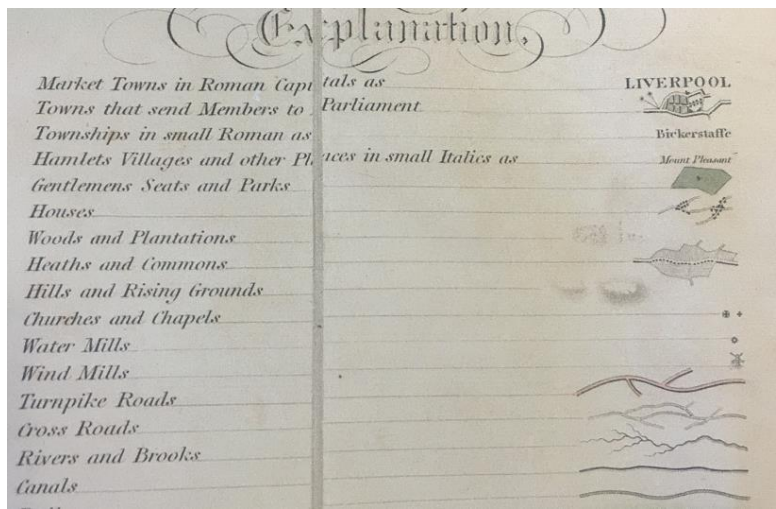 Explanation,
Market Towns in Roman Capitals as LIVERPOOL
Towns that send Members to Parliament
Townships in small Roman as Bickerstaffe
Hamlets Villages and other Places in small Italics as Mount Pleasant
Gentlemens Seats and Parks
Houses
Woods and Plantations
Heaths and Commons
Hills and Rising Grounds
Churches and Chapels
Water Mills
Wind Mills
Turnpike Roads
Cross Roads
Rivers and Brooks
Canals